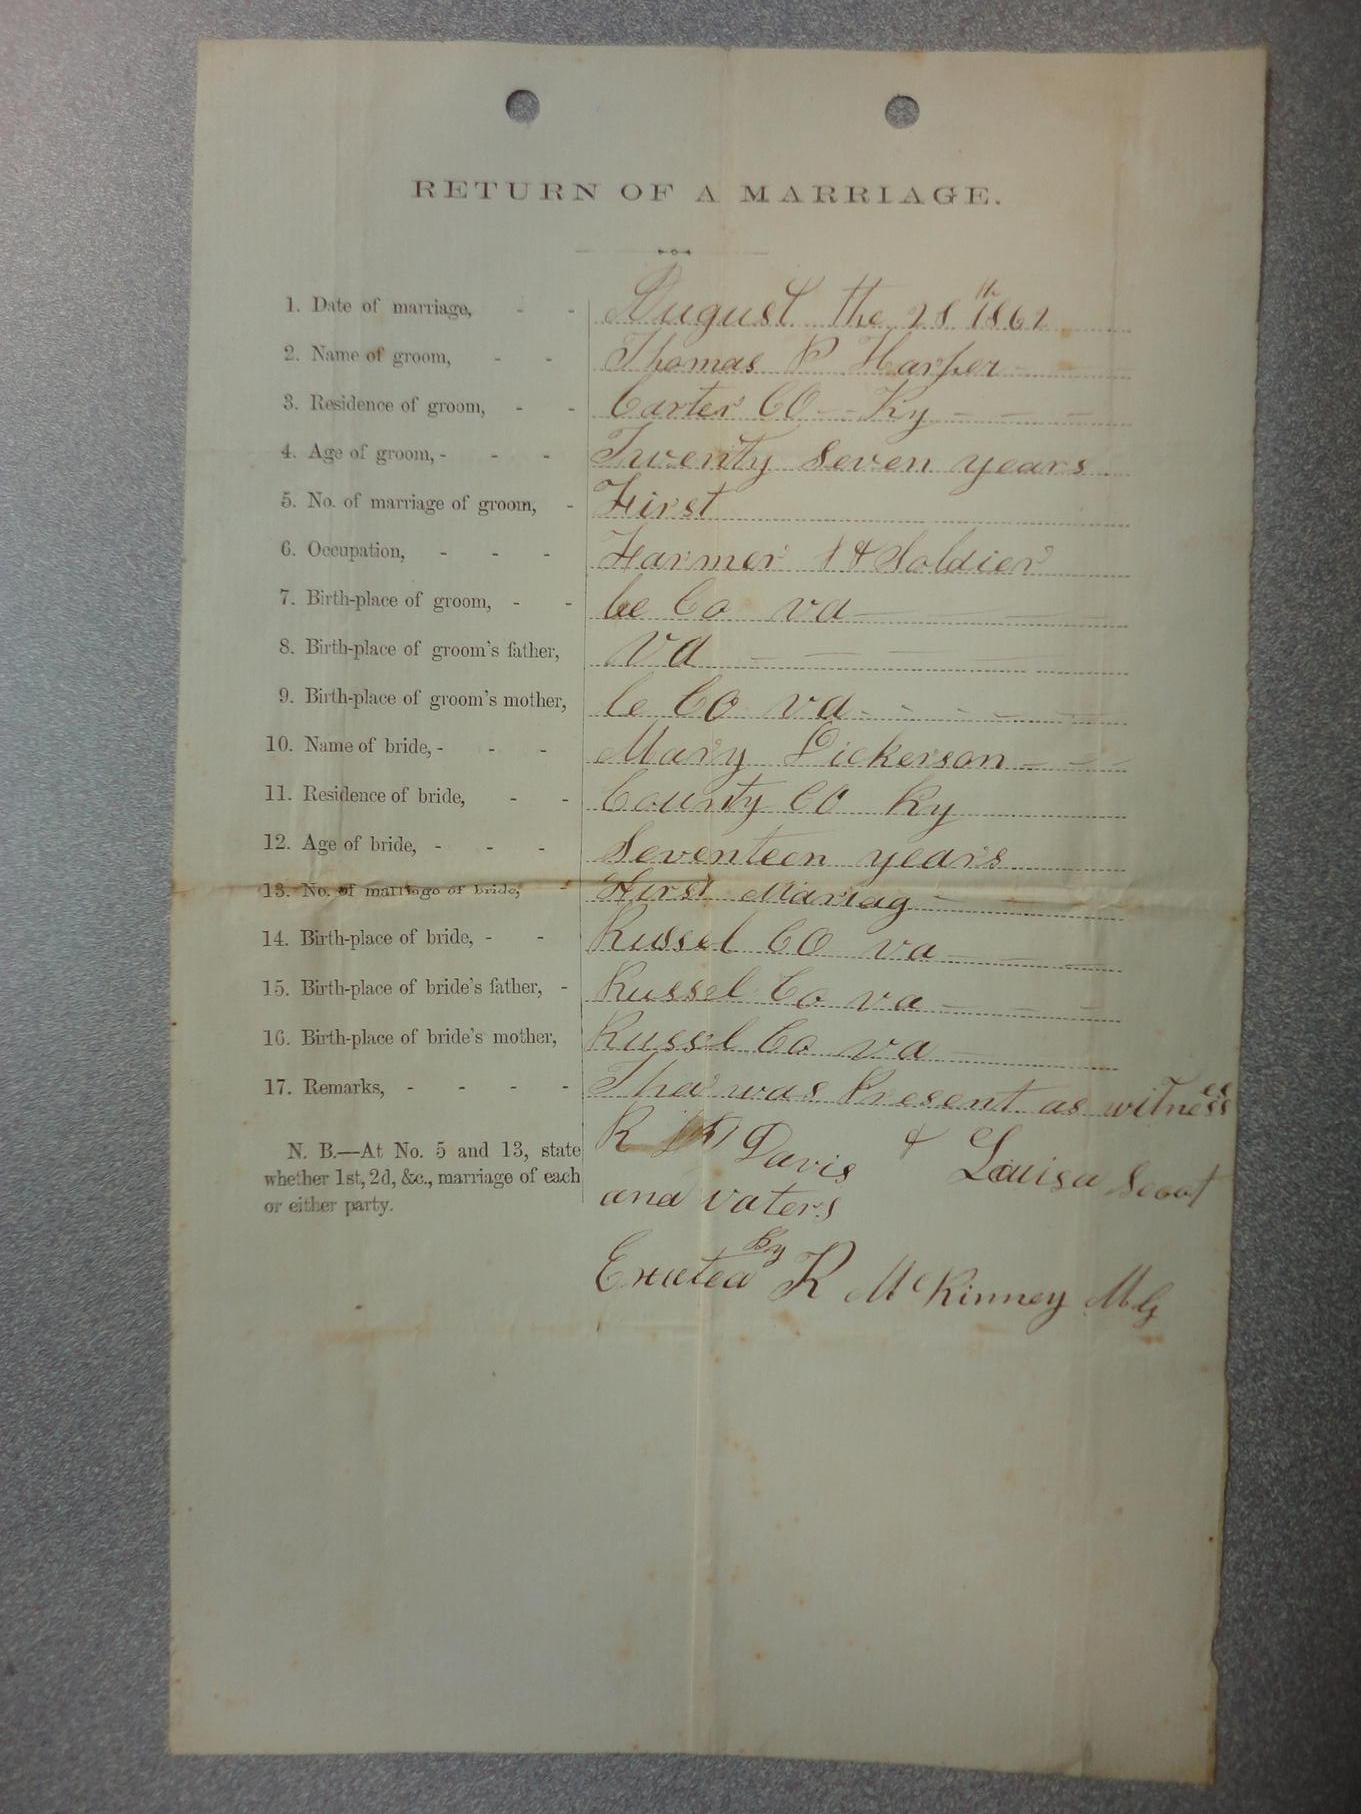 RETURN OF A MARRIAGE.
1. Date of marriage, - - August the 28th 1862
2. Name of groom, - - Thomas P Harper
3. Residence of groom, - - Carter CO - - Ky - - -
4. Age of groom, - - - Twenty Seven years
5. No. of marriage of groom, - First
6. Occupation, - - - Farmer & Soldier
7. Birth-place of groom, - - Lee Co va
8. Birth-place of groom's father, Va
9. Birth-place of groom's mother, Le CO va
10. Name of bride, - - - Mary Dickerson
11. Residence of bride, - - County CO Ky
12. Age of bride, - - - Seventeen years
13. No. of marriage of bride, - First Mariag
14. Birth-place of bride, - - Russel CO va
15. Birth-place of bride's father, - Russel Co va
16. Birth-place of bride's mother, Russel Co va
17. Remarks, - - - - Thar was Present as witnesses
R Davis & Louisa Scoot
and vaters
N. B.—At No. 5 and 13, state
whether 1st, 2d, &c., marriage of each
or either party.
By
R McKinney